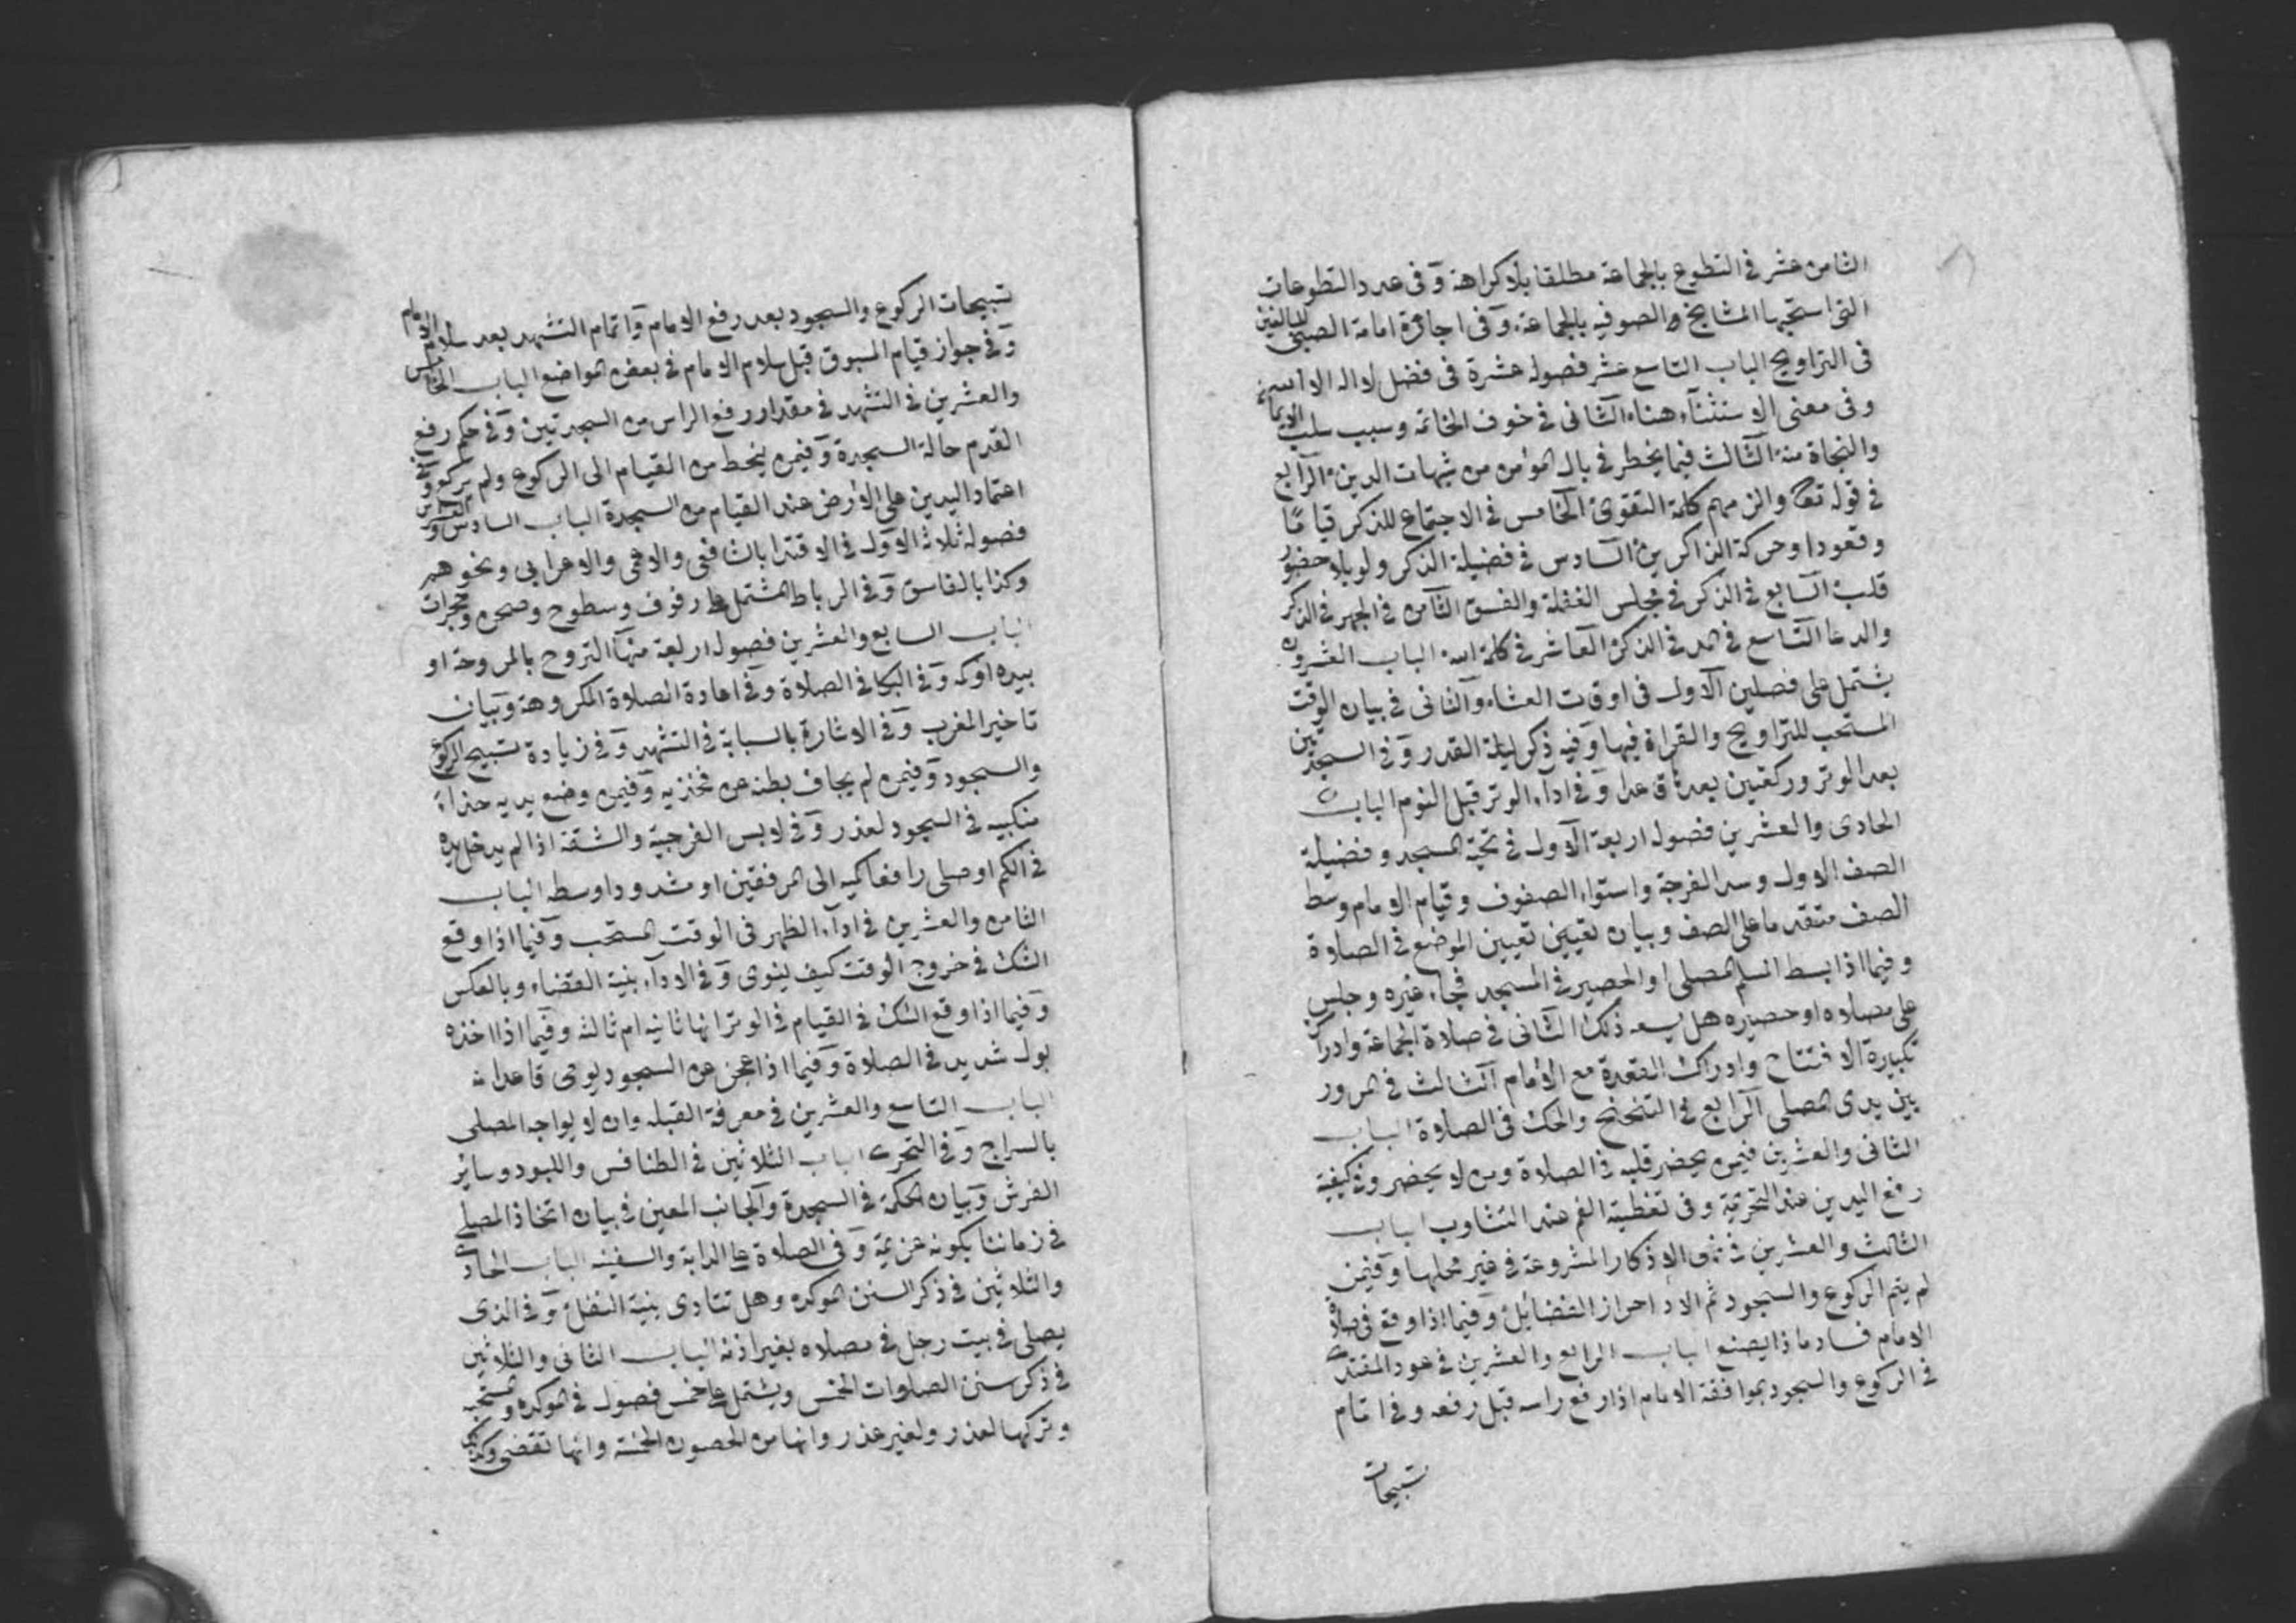 الثامن عشر فى التطوع بالجماعة مطلقا بلا كراهة وفى عدد التطوعات
التى استحبها المشايخ والصوفيه بالجماعة وفى اجازة امامة الصبى للبالغين
فى التراويح الباب التاسع عشر فصوله عشرة فى فضل لا اله الا الله
وفى معنى الاستثناء هنا الثانى فى خوف الخاتمة وسبب سلب الايمان
والنجاة منه الثالث فيما يخطر فى بال المؤمن من شبهات الدين الرابع
فى قوله تعا والزمهم كلمة التقوى الخامس فى الاجتماع للذكر قياما
وقعودا وحركة الذاكرين السادس فى فضيلة الذكر ولو بلا حضور
قلب السابع فى الذكر فى مجلس الغفلة والفسق الثامن فى الجهر فى الذكر
والدعا التاسع فى المد فى الذكر العاشر فى كلمة الله الباب العشرون
يشتمل على فصلين الاول فى اوقات العشاء والثانى فى بيان الوقت
المستحب للتراويح والقراة فيها وفيه ذكر ليلة القدر وفى السجدتين
بعد الوتر وركعتين بعده قاعدا وفى اداء الوتر قبل النوم الباب
الحادى والعشرين فصوله اربعة الاول فى تحية المسجد وفضيلة
الصف الاول وسد الفرجة واستواء الصفوف وقيام الامام وسط
الصف متقدما على الصف وبيان تعيين تعيين الموضع فى الصلاة
وفيما اذا بسط المسلم المصلى او الحصير فى المسجد فجاء غيره وجلس
على مصلاه او حصيره هل يسعه ذلك الثانى فى صلاة الجماعة وادراك
تكبيرة الافتتاح وادراك القعدة مع الامام الثالث فى المرور
بين يدى المصلى الرابع فى التنحنح والحك فى الصلاة الباب
الثانى والعشرين فيمن يحضر قلبه فى الصلاة ومن لا يحضر وفى كيفية
رفع اليدين عند التحريمة وفى تغطية الفم عند التثاوب الباب
الثالث والعشرين فى الاذكار المشروعة فى غير محلها وفيمن
لم يتم الركوع والسجود ثم احراز الفضائل وفيما اذا وقع فى صلاة
الامام فساد ماذا يصنع الباب الرابع والعشرين فى عود المقتدى
فى الركوع والسجود بموافقة الامام اذا رفع راسه قبل رفعه وفى اتمام
تسبيحات
تسبيحات الركوع والسجود بعد رفع الامام واتمام التشهد بعد سلام الامام
وفى جواز قيام المسبوق قبل سلام الامام فى بعض المواضع الباب الخامس
والعشرين فى التشهد فى مقدار رفع الراس من السجدتين وفى حكم رفع
القدم حالة السجدة وفيمن ينحط من القيام الى الركوع ولم يركع وفى
اعتماد اليدين على الارض عند القيام من السجدة الباب السادس والعشرين
فصوله ثلاثة الاول فى الاقتدا بالشافعى والاعمى والاعرابى ونحوهم
وكذا بالفاسق وفى الرباط المشتمل على رفوف وسطوح وصحن وحجرات
الباب السابع والعشرين فصوله اربعة منها التروح بالمروحة او
بيده او كمه وفى البكا فى الصلاة وفى اعادة الصلاة المكروهة وبيان
تاخير المغرب وفى الاشارة بالسبابة فى التشهد وفى زيادة تسبيح الركوع
والسجود وفيمن لم يجاف بطنه عن فخذيه وفيمن وضع يديه حذاء
منكبيه فى السجود لعذر وفى لابس الفرجية والشقة اذا لم يدخل يده
فى الكم او صلى رافعا كميه الى المرفقين او مشدودا وسطه الباب
الثامن والعشرين فى اداء الظهر فى الوقت المستحب وفيما اذا وقع
الشك فى خروج الوقت كيف ينوى وفى الاداء بنية القضاء وبالعكس
وفيما اذا وقع الشك فى القيام فى الوتر انها ثانيه ام ثالثة وفيما اذا اخذه
بول شديد فى الصلاة وفيما اذا عجز عن السجود يومى قاعدا
الباب التاسع والعشرين فى معرفة القبله وان لا يواجه المصلى
بالسراج وفى التحرى الباب الثلاثين فى الطنافس واللبود وسائر
الفرش وبيان الحكمة فى السجدة والجانب المعين فى بيان اتخاذ المصلى
فى زماننا بكونه عزيمة وفى الصلاة على الدابة والسفينه الباب الحادى
والثلاثين فى ذكر السنن الموكده وهل تتادى بنية النفل وفى الذى
يصلى فى بيت رجل فى مصلاه بغير اذنه الباب الثانى والثلاثين
فى ذكر سنن الصلوات الخمس ويشتمل على خمس فصول فى الموكده والمستحبه
وتركها لعذر ولغير عذر وانها من الحصون الخمسة وانها تقضى